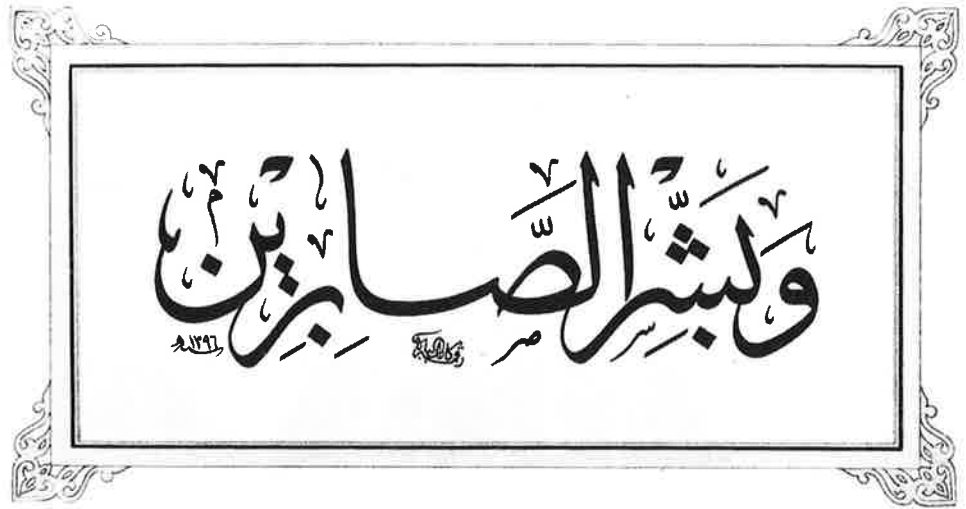 وَبَشِّرِ الصَّابِرِينَ
١٣٩٦